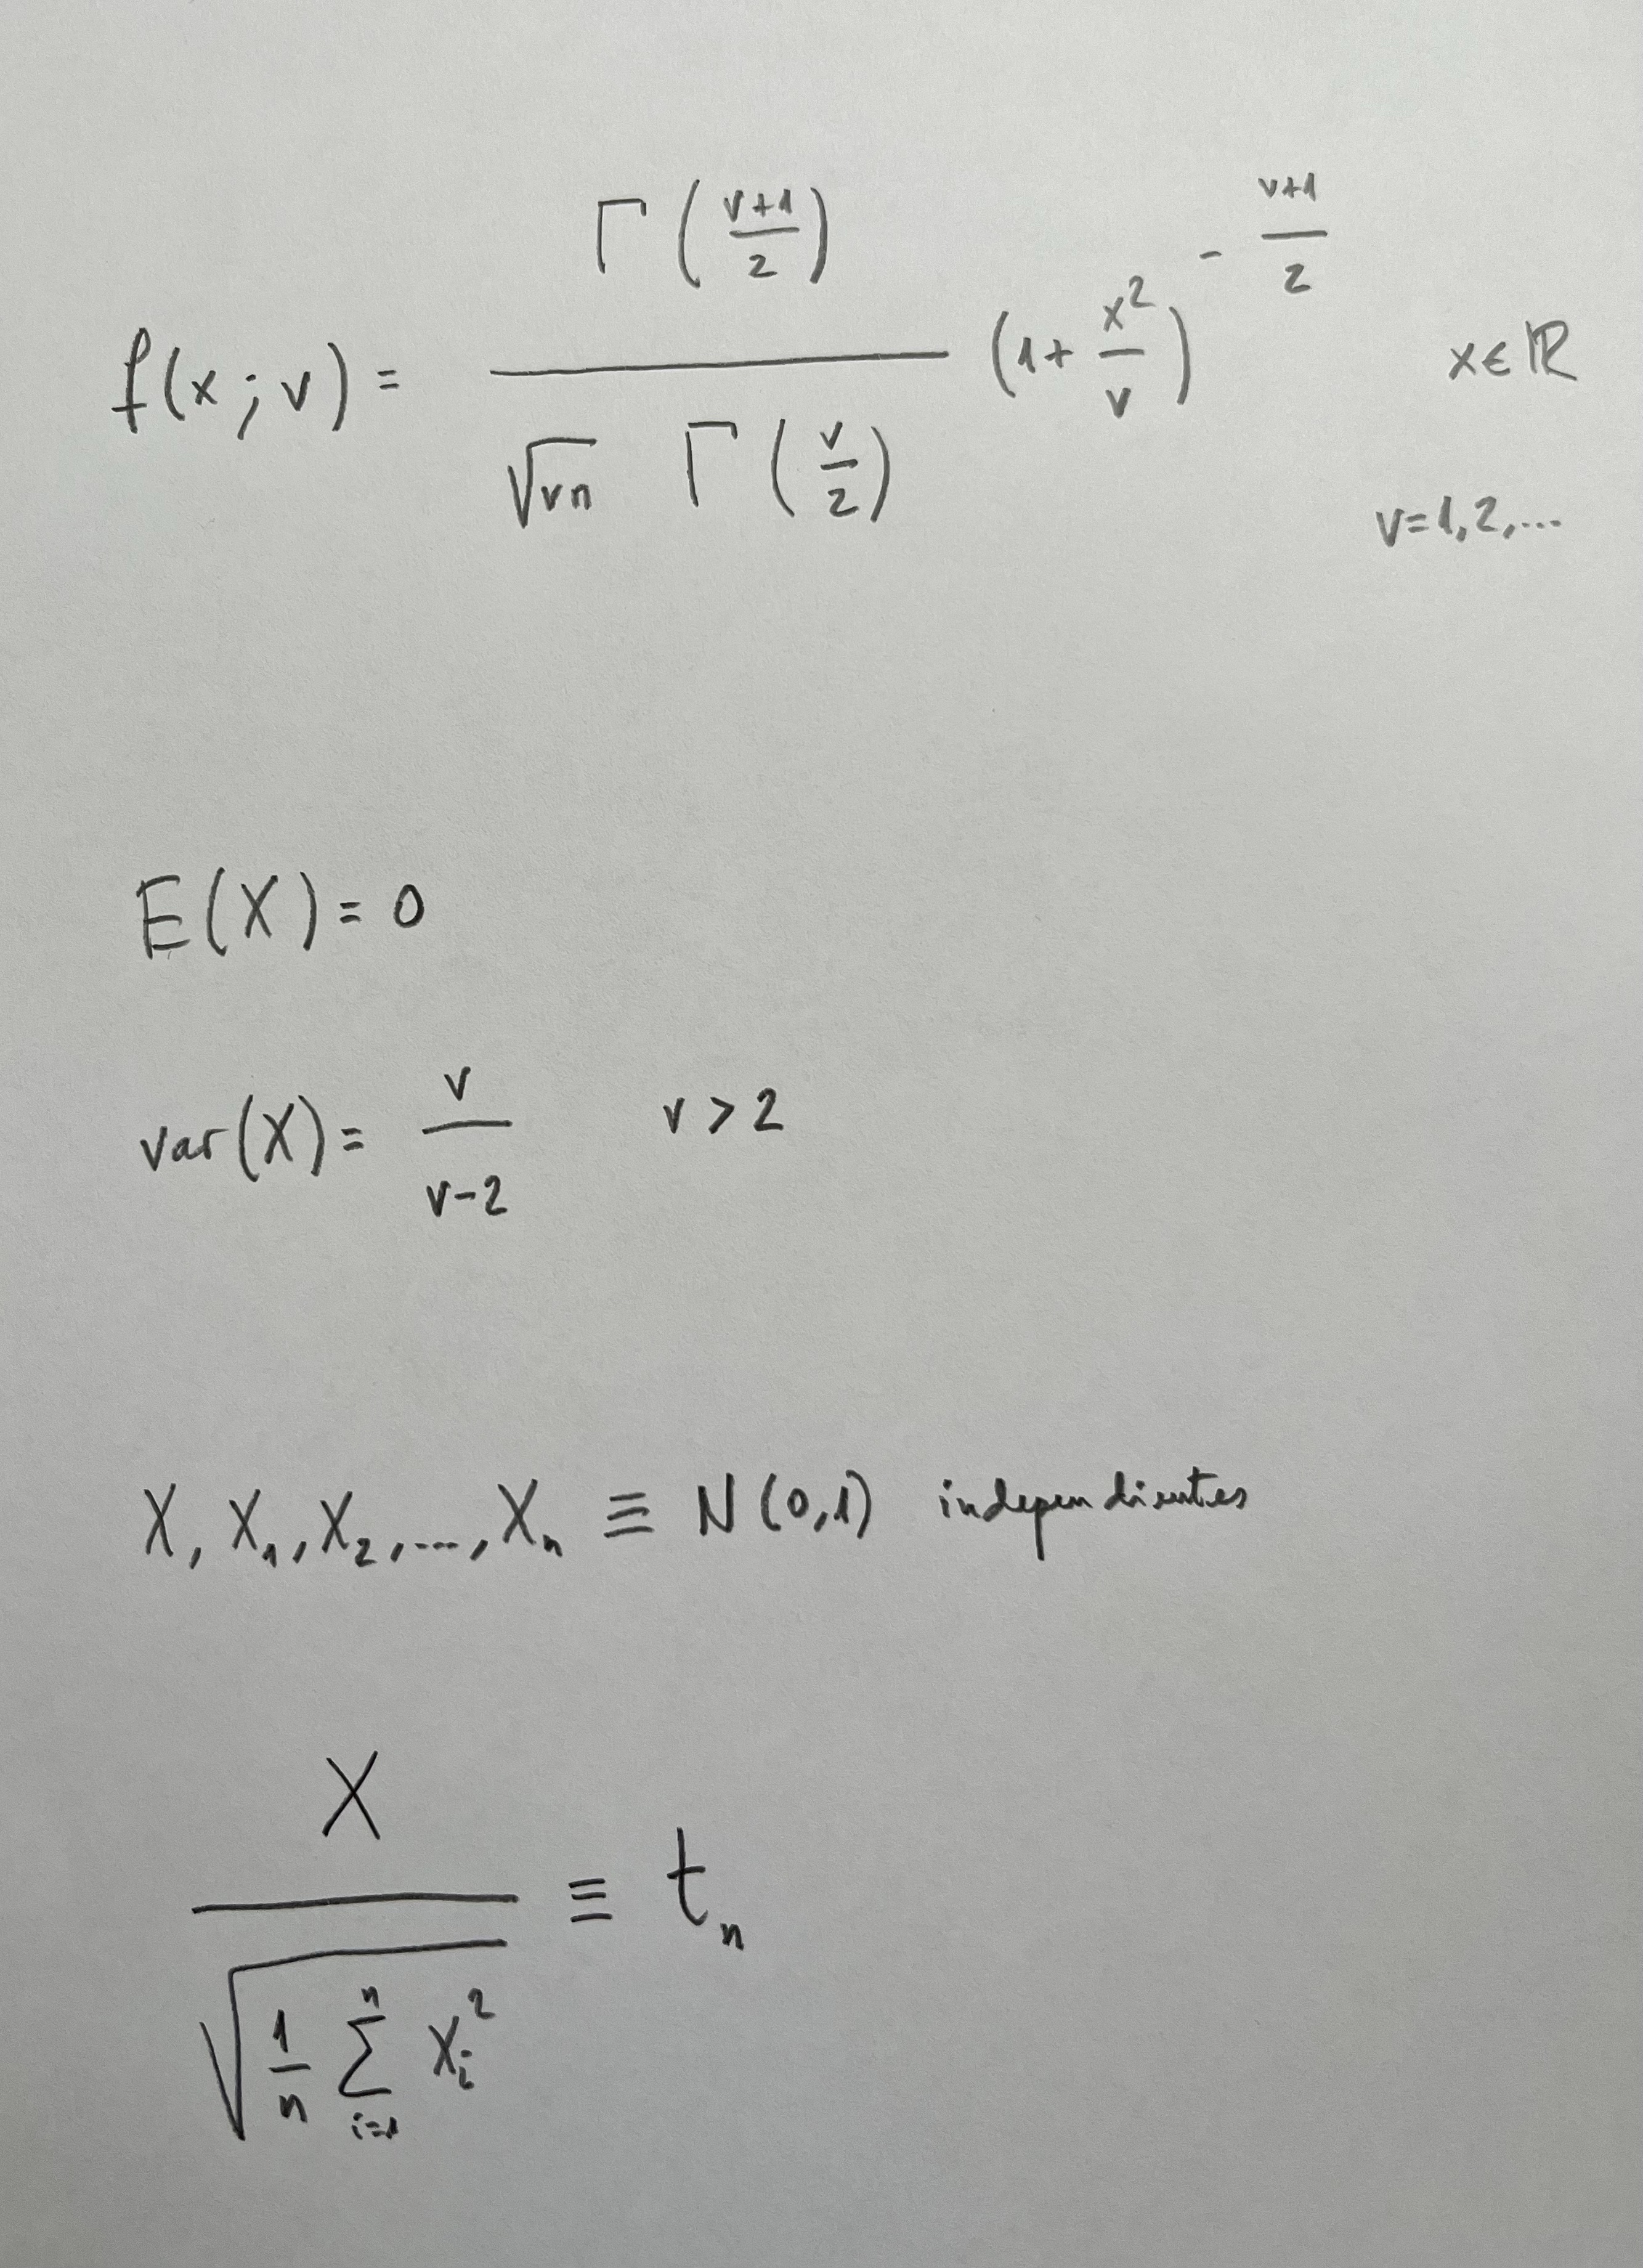 f(x;v) = Γ((v+1)/2) / (√(vn) Γ(v/2)) (1 + x²/v)^(-(v+1)/2) x∈ℝ
v=1,2,...
E(X)=0
var(X)= v/(v-2) v>2
X, X₁, X₂, ..., Xₙ ≡ N(0,1) independientes
X / √(1/n ∑_{i=1}^{n} Xᵢ²) ≡ tₙ